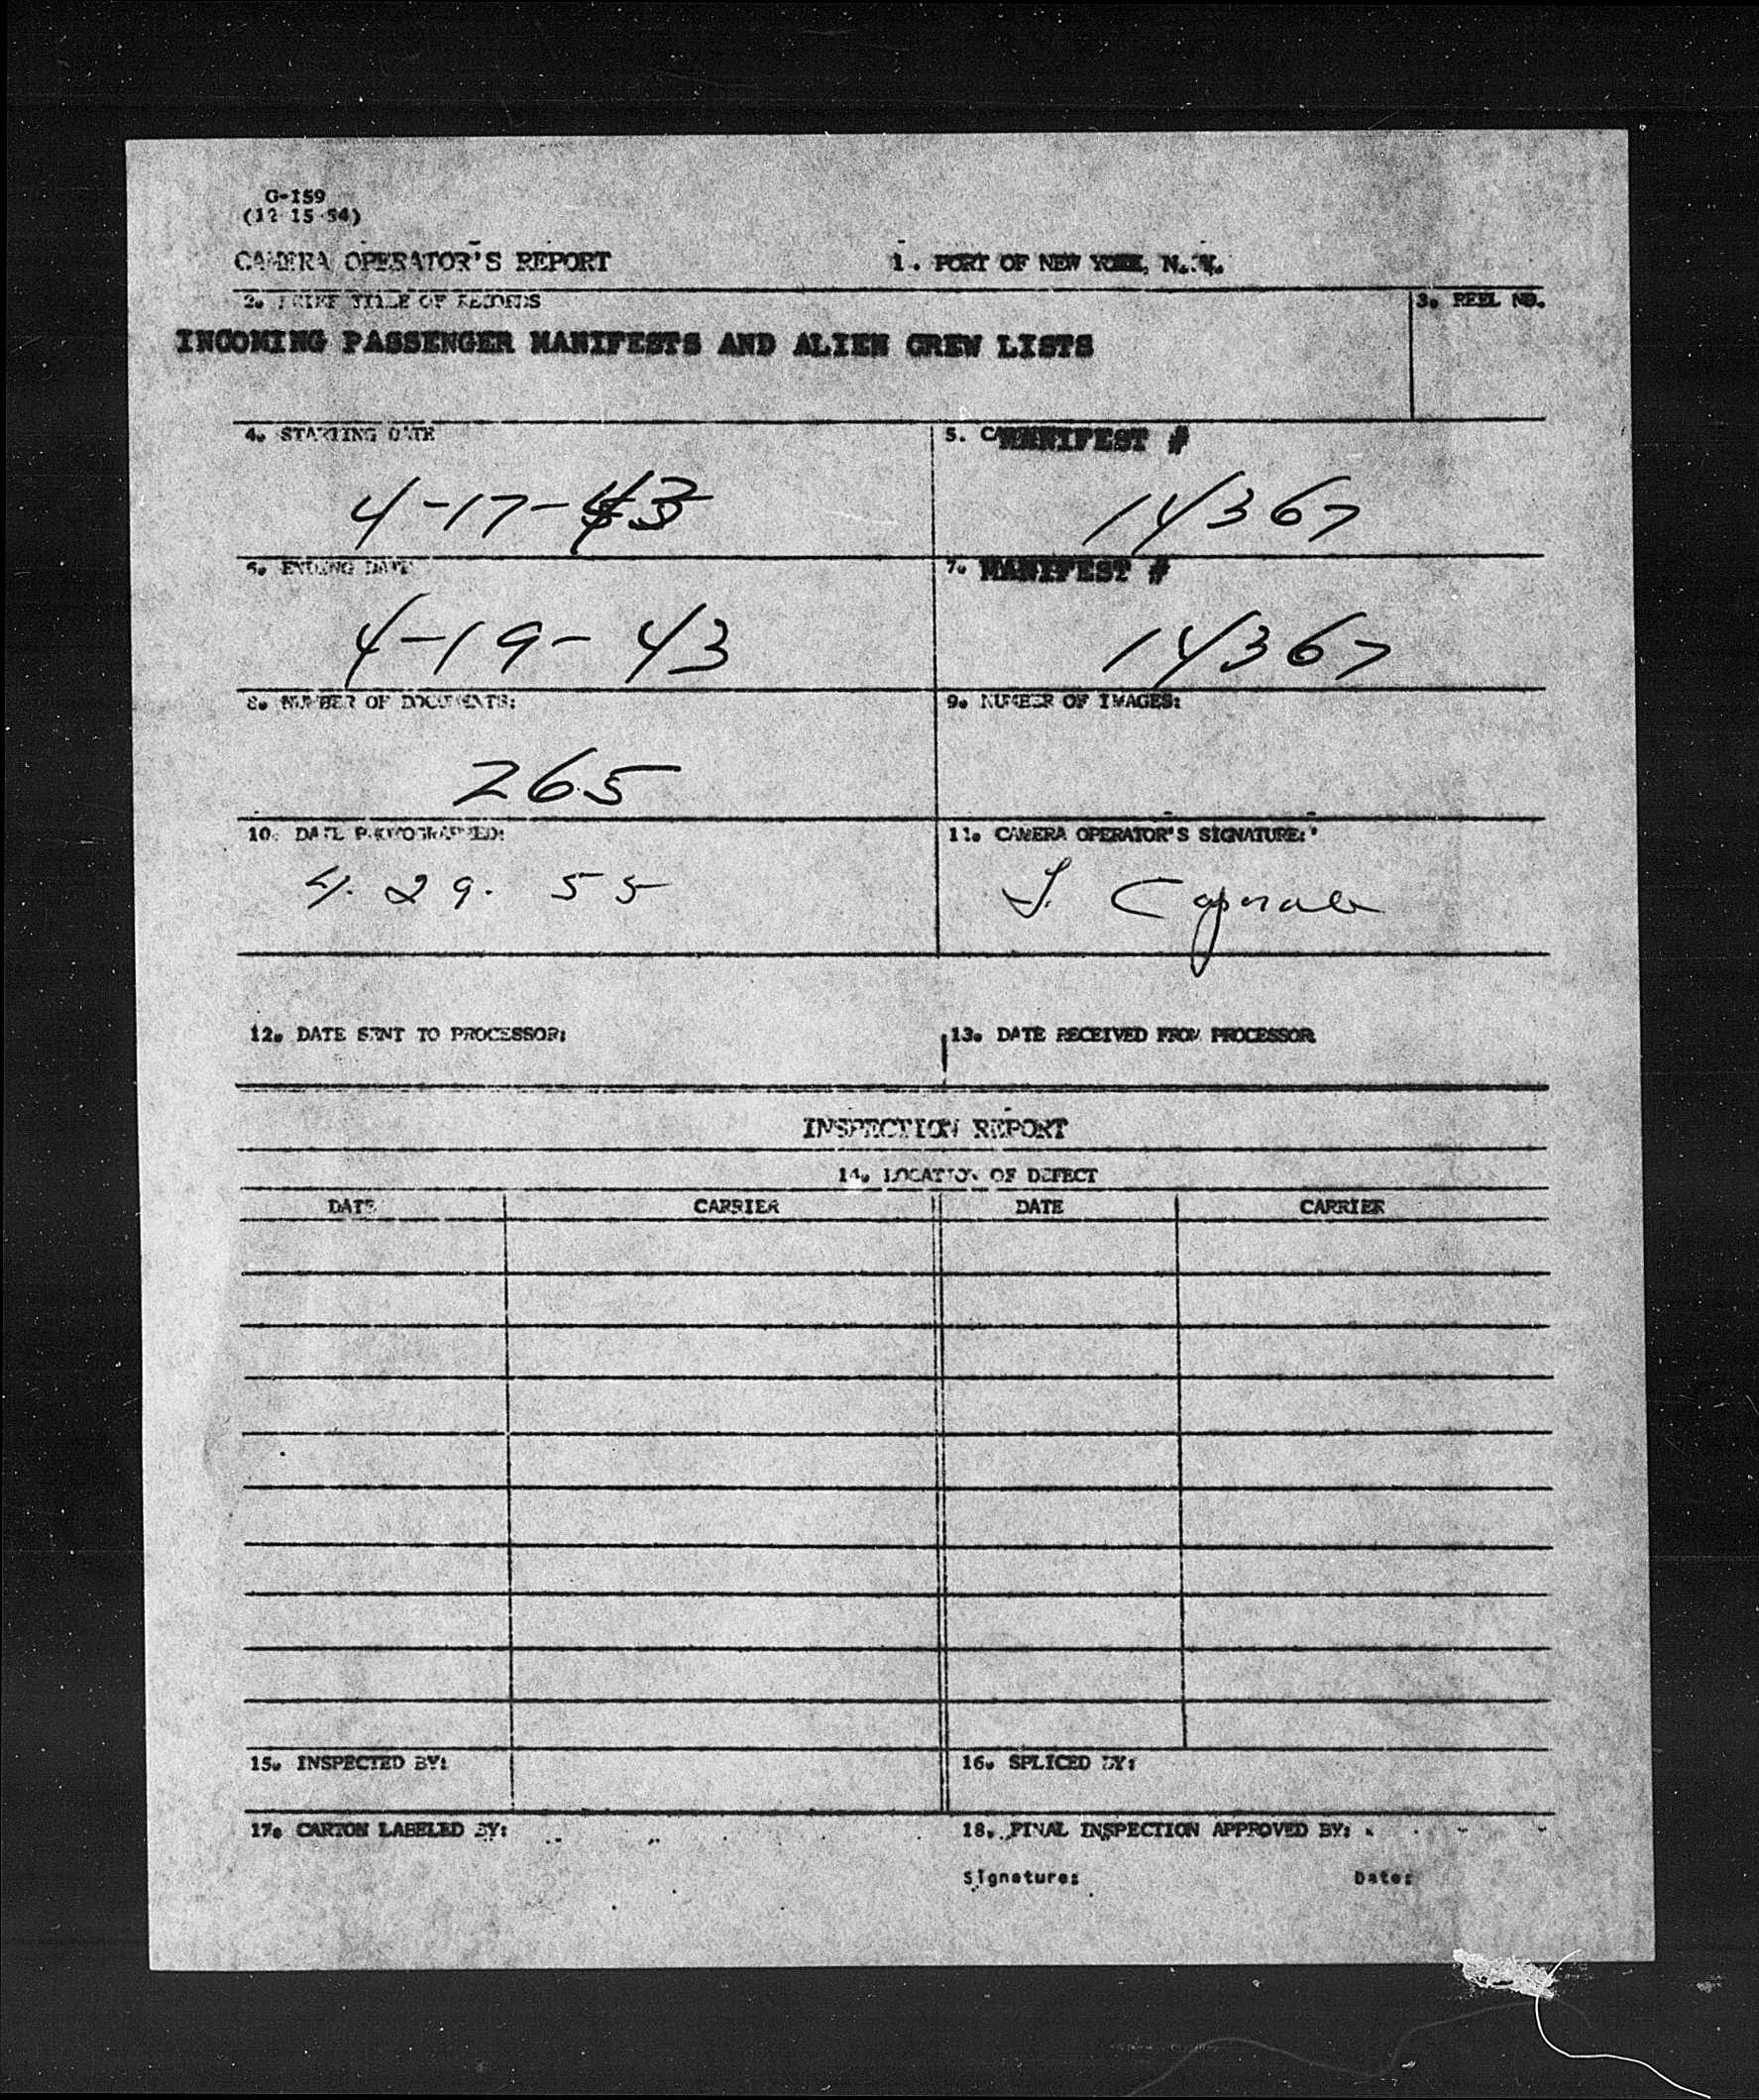 G-159
(12-15-54)
CAMERA OPERATOR'S REPORT 1. PORT OF NEW YORK, N. Y.
2. BRIEF TITLE OF RECORDS 3. REEL NO.
INCOMING PASSENGER MANIFESTS AND ALIEN CREW LISTS
4. STARTING DATE 5. MANIFEST #
4-17-43 14367
6. ENDING DATE 7. MANIFEST #
4-19-43 14367
8. NUMBER OF DOCUMENTS: 9. NUMBER OF IMAGES:
265
10. DATE PHOTOGRAPHED: 11. CAMERA OPERATOR'S SIGNATURE:
4. 29. 55 Caporale
12. DATE SENT TO PROCESSOR: 13. DATE RECEIVED FROM PROCESSOR
INSPECTION REPORT
14. LOCATION OF DEFECT
DATE CARRIER DATE CARRIER
15. INSPECTED BY: 16. SPLICED BY:
17. CARTON LABELED BY: 18. FINAL INSPECTION APPROVED BY:
Signature: Date: